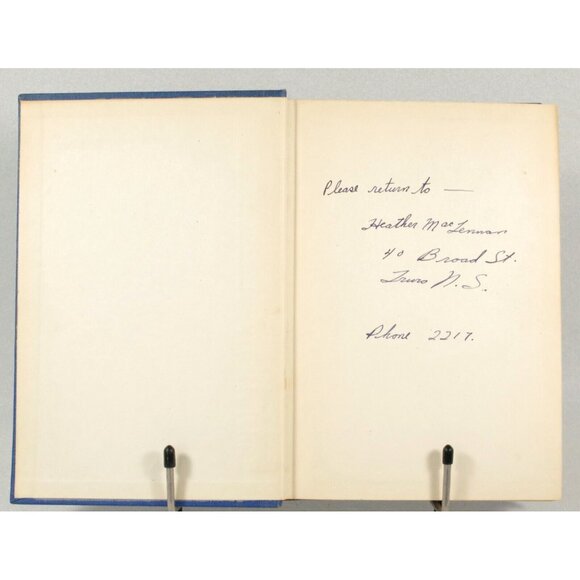 Please return to —
Heather MacLennan
40 Broad St.
Truro N.S.
Phone 2217.